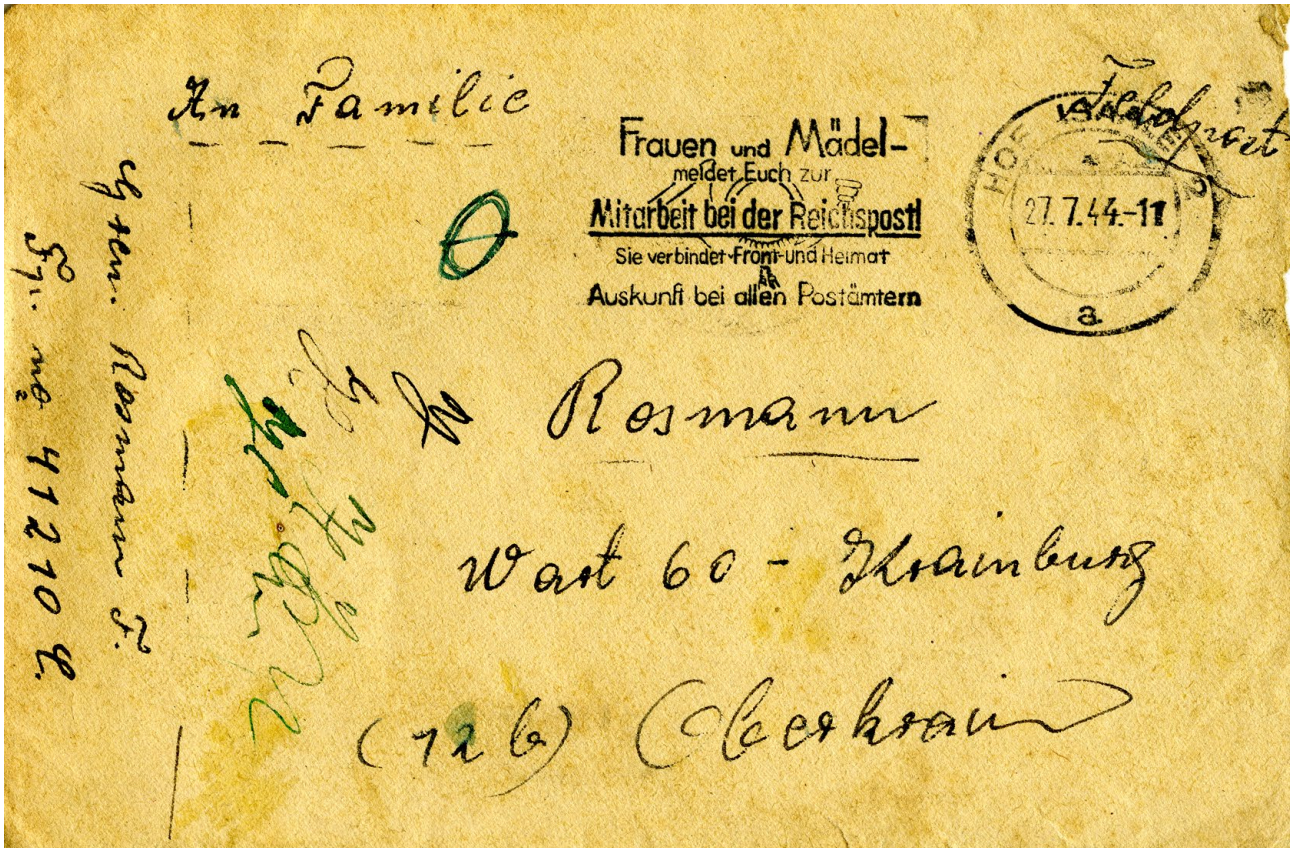 An Familie
Feldpost
Frauen und Mädel-
meldet Euch zur
Mitarbeit bei der Reichspost!
Sie verbindet Front und Heimat
Auskunft bei allen Postämtern
HOF 2
27.7.44.-11
a
Rosmann
Wart 60 - Krainburg
(12b) Oberkrain
Gren. Rosmann F.
41210